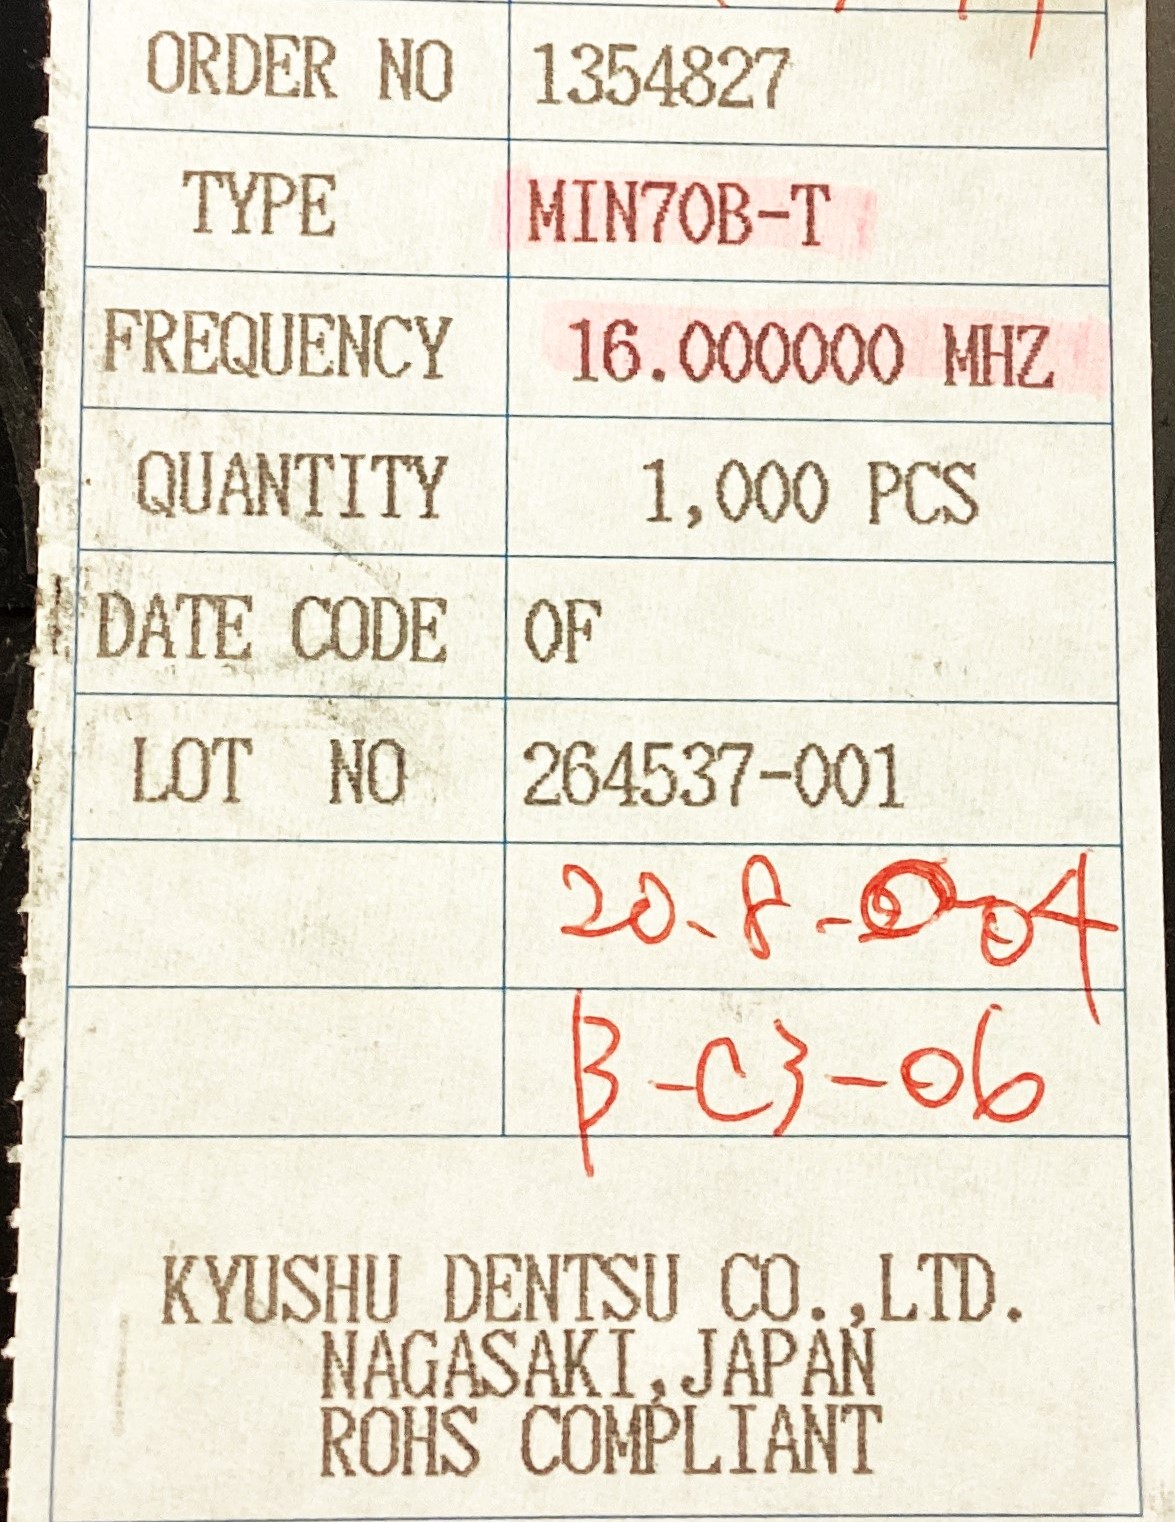 ORDER NO 1354827
TYPE MIN70B-T
FREQUENCY 16.000000 MHZ
QUANTITY 1,000 PCS
DATE CODE 0F
LOT NO 264537-001
20.8.04
B-C3-06
KYUSHU DENTSU CO.,LTD.
NAGASAKI,JAPAN
ROHS COMPLIANT